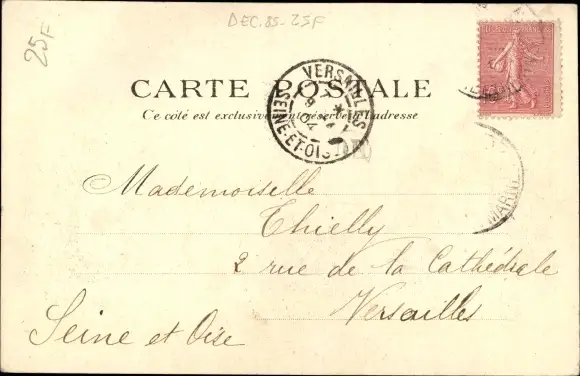 DEC.85-25F
25F
CARTE POSTALE
Ce côté est exclusivement réservé à l'adresse
VERSAILLES
SEINE-ET-OISE
MARNE
Mademoiselle
Thielly
2 rue de la Cathédrale
Versailles
Seine et Oise